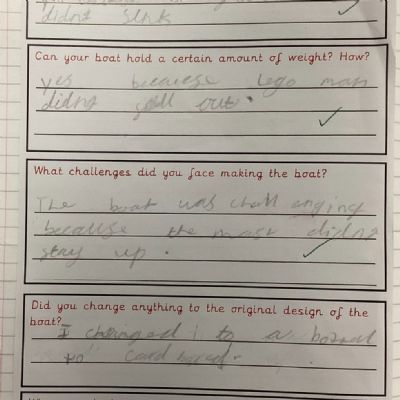 didnt sink
Can your boat hold a certain amount of weight? How?
yes because lego man
didnt fall out.
What challenges did you face making the boat?
The boat was chall enging
because the mast didnt
stay up.
Did you change anything to the original design of the
boat?
I changed it to a
card bored.